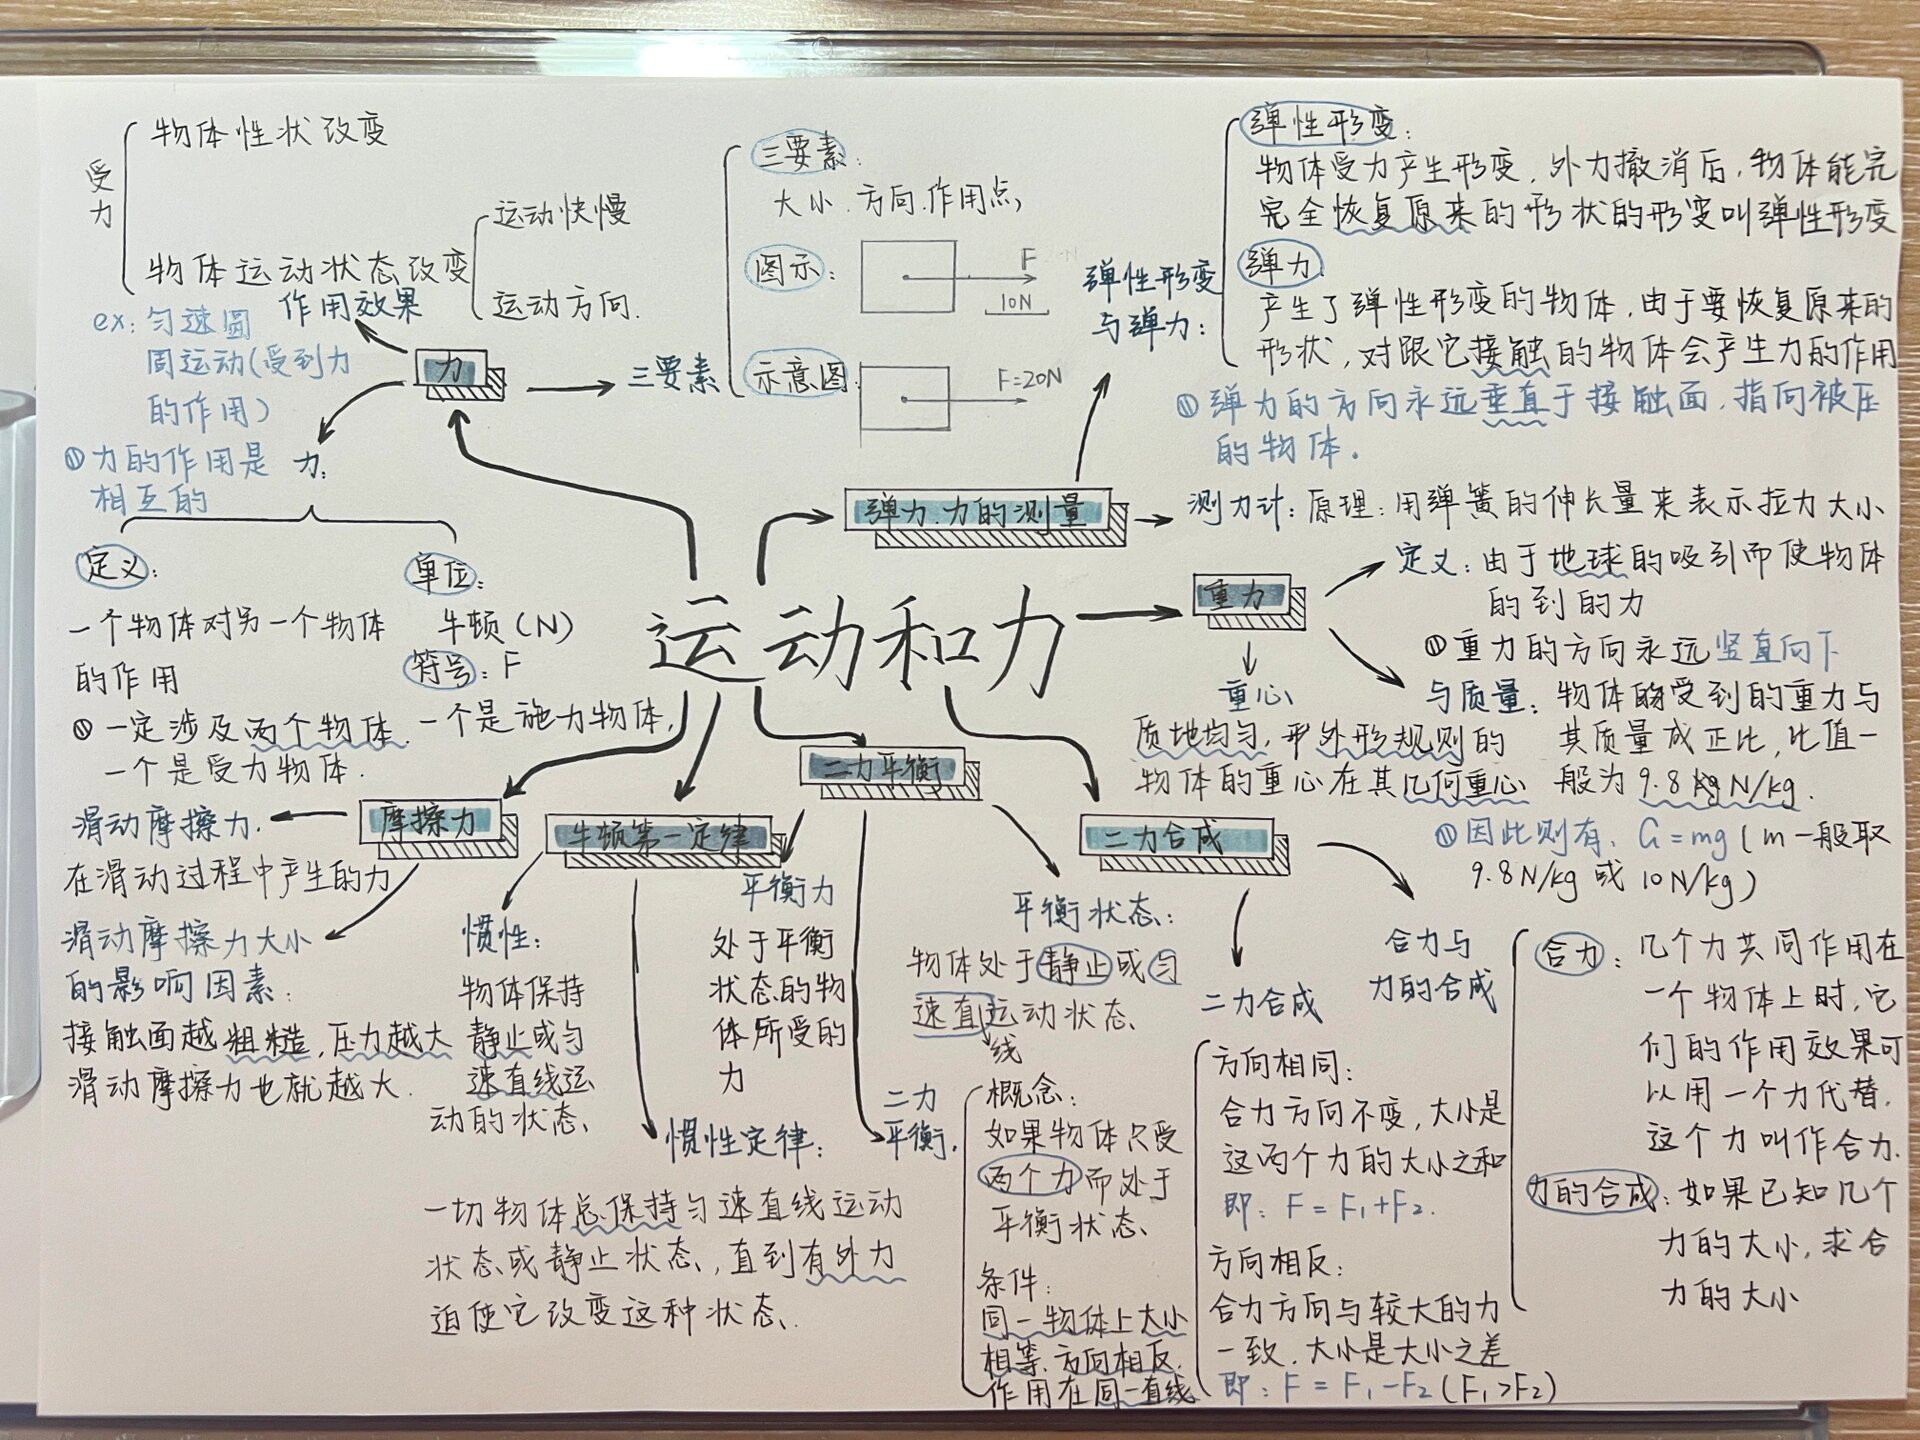 运动和力
力
作用效果
受力
物体性状改变
物体运动状态改变
运动快慢
运动方向.
ex: 匀速圆
周运动(受到力
的作用)
力的作用是
相互的
力:
定义:
一个物体对另一个物体
的作用
单位:
牛顿(N)
符号: F
一定涉及两个物体. 一个是施力物体,
一个是受力物体.
三要素
三要素:
大小.方向.作用点,
图示:
F
10N
示意图:
F=20N
弹力.力的测量
弹性形变
与弹力:
弹性形变:
物体受力产生形变,外力撤消后,物体能完
完全恢复原来的形状的形变叫弹性形变
弹力:
产生了弹性形变的物体,由于要恢复原来的
形状,对跟它接触的物体会产生力的作用
弹力的方向永远垂直于接触面,指向被压
的物体.
测力计: 原理: 用弹簧的伸长量来表示拉力大小
重力
定义: 由于地球的吸引而使物体
的到的力
重力的方向永远竖直向下
与质量: 物体的受到的重力与
其质量成正比,比值一
般为 9.8 N/kg.
因此则有, G=mg(m一般取
9.8N/kg 或 10N/kg)
重心
质地均匀,外形规则的
物体的重心在其几何重心
摩擦力
滑动摩擦力.
在滑动过程中产生的力
滑动摩擦力大小
的影响因素:
接触面越粗糙,压力越大
滑动摩擦力也就越大.
牛顿第一定律
惯性:
物体保持
静止或匀
速直线运
动的状态
惯性定律:
一切物体总保持匀速直线运动
状态或静止状态,直到有外力
迫使它改变这种状态.
二力平衡
平衡力
处于平衡
状态的物
体所受的
力
平衡状态:
物体处于静止或匀
速直运动状态
线
二力
平衡.
概念:
如果物体只受
两个力而处于
平衡状态
条件:
同一物体上大小
相等.方向相反.
作用在同一直线
二力合成
二力合成
方向相同:
合力方向不变,大小是
这两个力的大小之和
即: F=F₁+F₂.
方向相反:
合力方向与较大的力
一致.大小是大小之差
即: F=F₁-F₂(F₁>F₂)
合力与
力的合成
合力: 几个力共同作用在
一个物体上时,它
们的作用效果可
以用一个力代替.
这个力叫作合力.
力的合成: 如果已知几个
力的大小,求合
力的大小